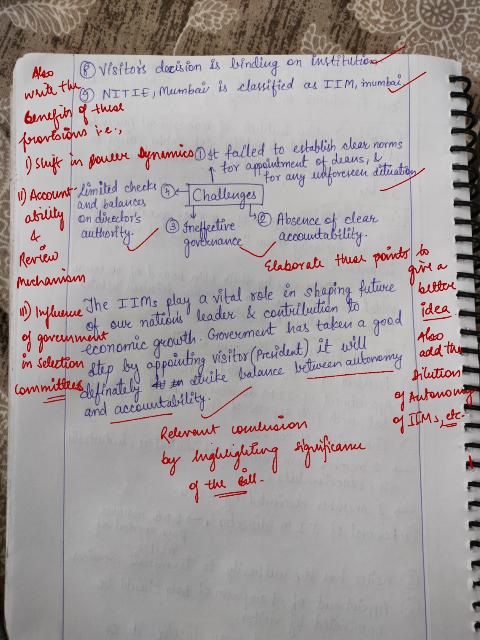 ⑧ Visitor's decision is binding on institution
⑨ NITIE, Mumbai is classified as IIM, mumbai
Also
write the
benefit of these
provisions i.e.,
I) Shift in power dynamics
II) Account-
ability
&
Review
Mechanism
III) Influence
of government
in selection
committees
① It failed to establish clear norms
for appointment of deans, &
for any unforeseen situation
Challenges
② Absence of clear
accountability.
③ Ineffective
governance
④ Limited checks
and balances
on director's
authority.
Elaborate these points to
give a
better
idea
Also
add the
Dilution
of Autonomy
of IIMs, etc.
The IIMs play a vital role in shaping future
of our nations leader & contribution to
economic growth. Goverment has taken a good
step by appointing visitor (President) it will
definately strike balance between autonomy
and accountability.
Relevant conclusion
by highlighting significance
of the Bill.